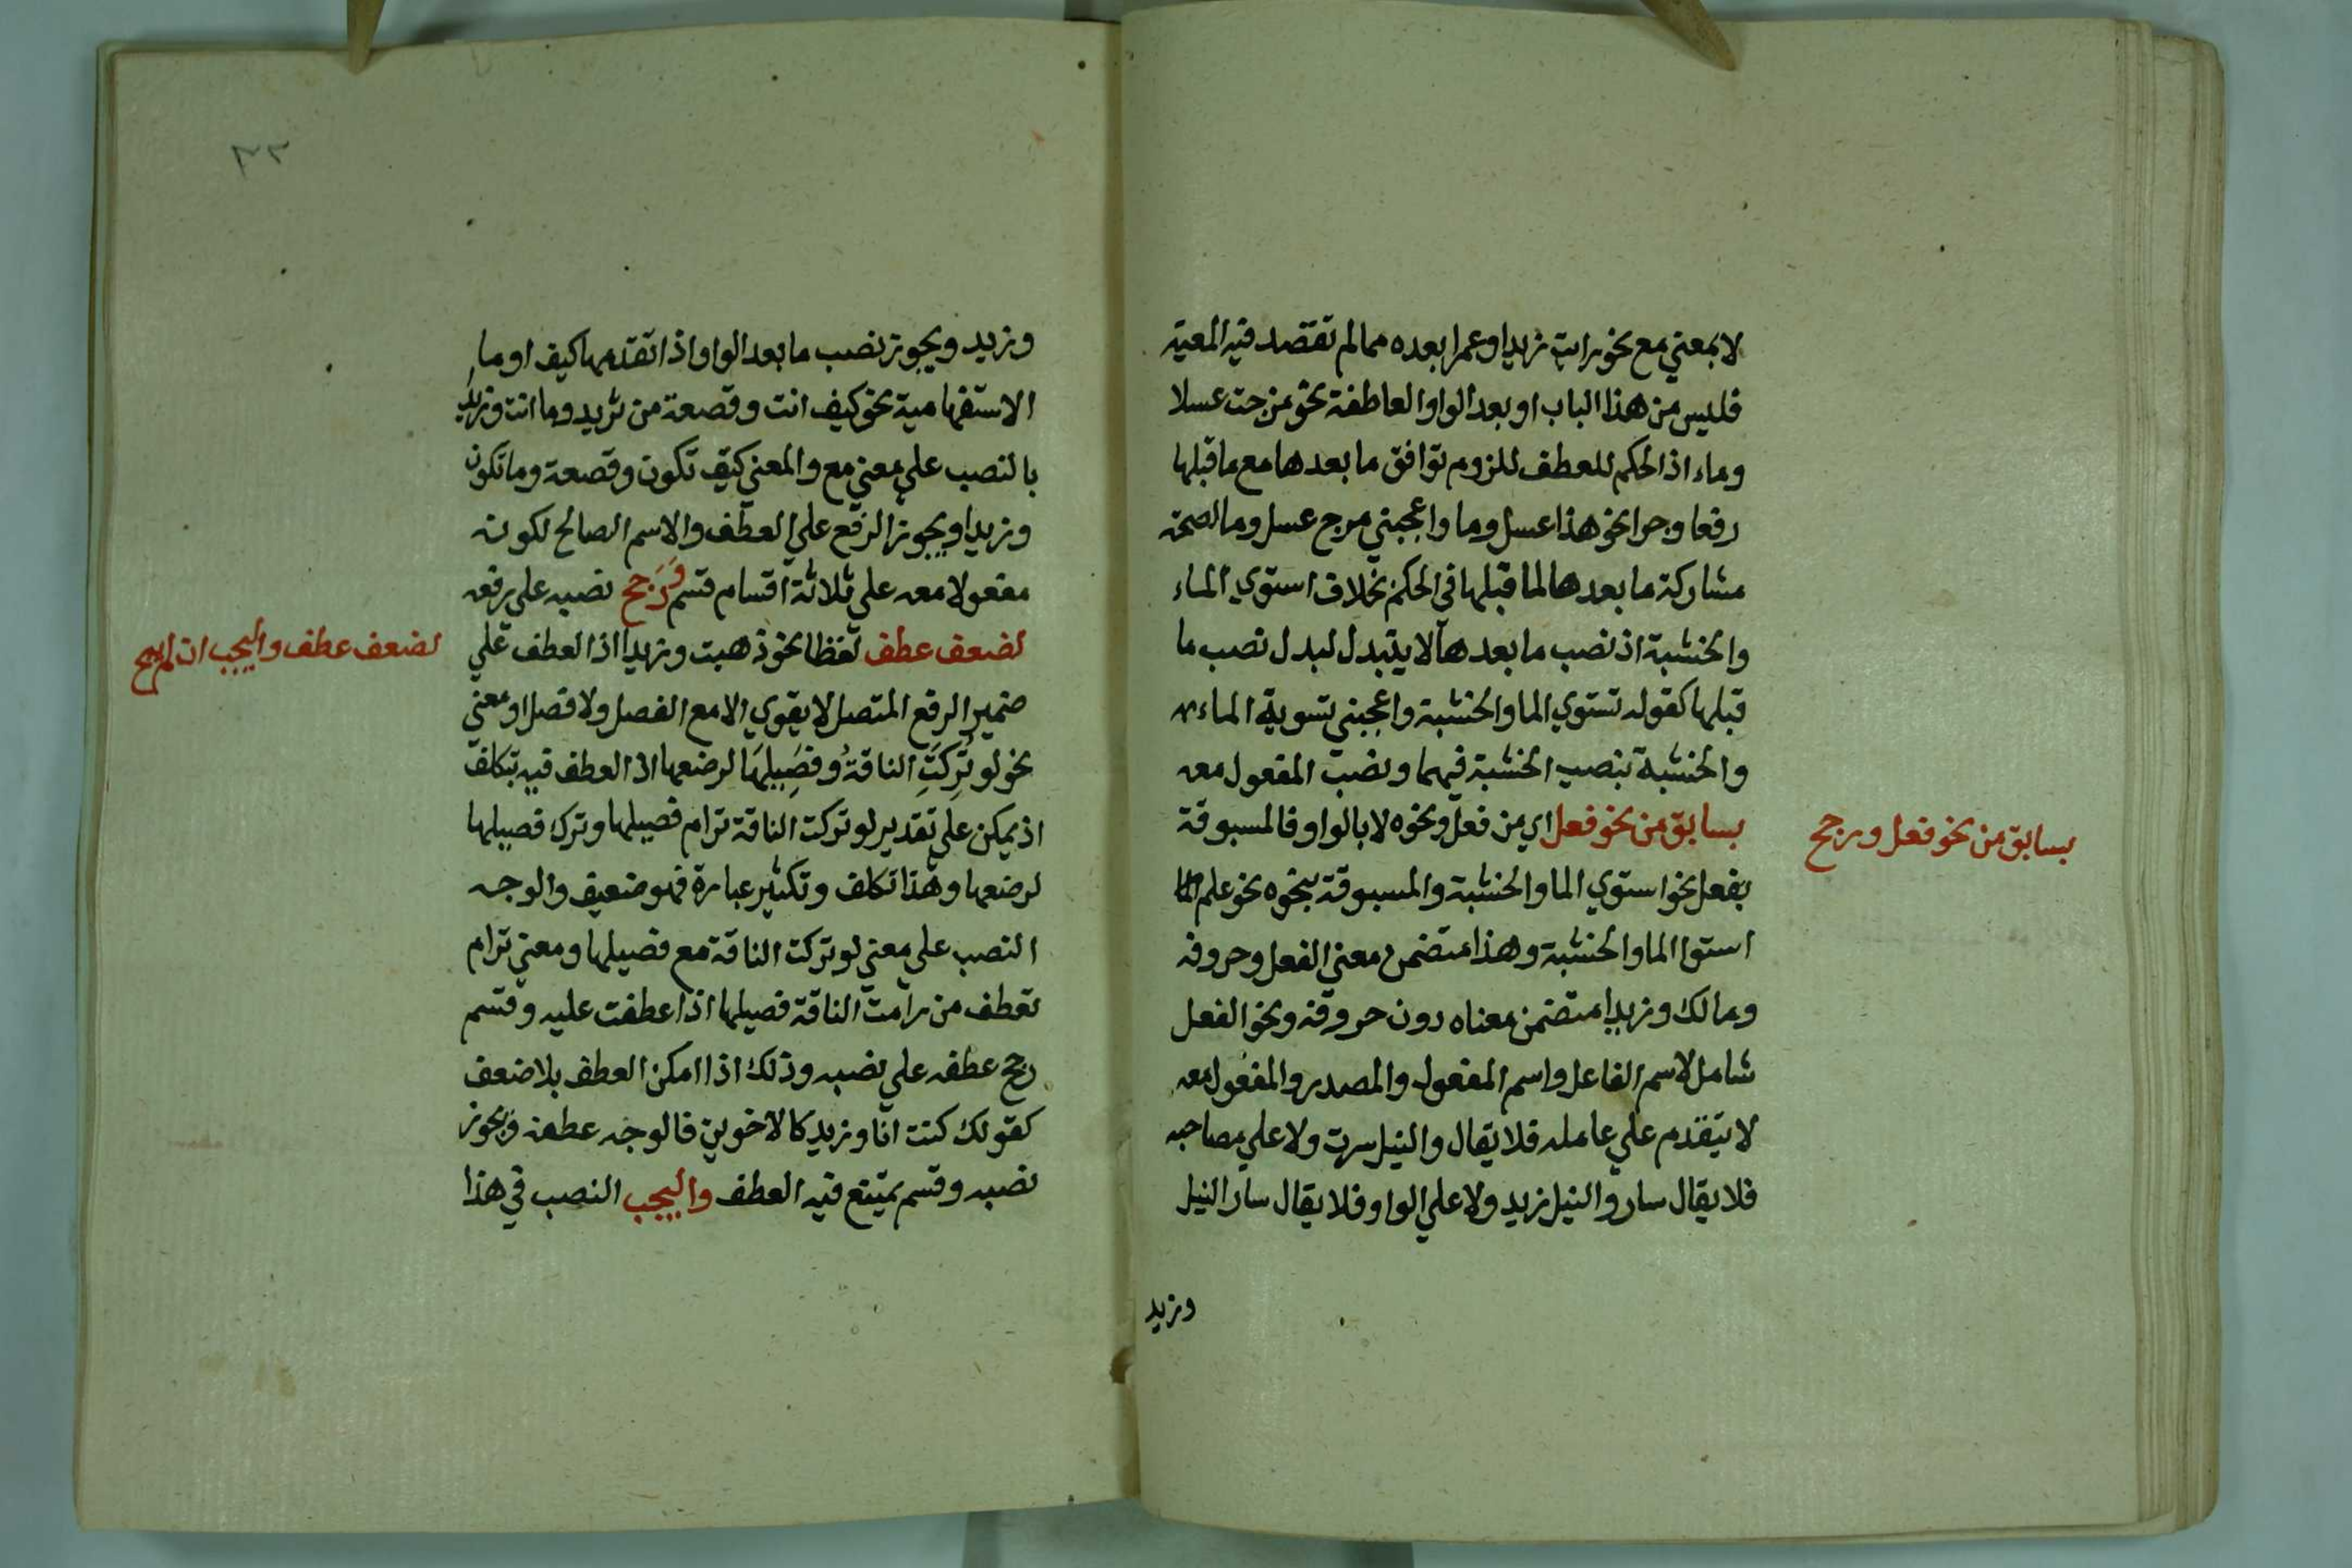 لا بمعني مع نحو رايت زيدا وعمرا بعده مما لم تقصد فيه المعية
فليس من هذا الباب او بعد الواو العاطفة نحو مزجت عسلا
وماء اذ الحكم للعطف للزوم توافق ما بعدها مع ما قبلها
رفعا وجرا نحو هذا عسل وما واعجبني مزج عسل وما لصحة
مشاركة ما بعدها لما قبلها في الحكم بخلاف استوي الماء
والخشبة اذ نصب ما بعدها لا يتبدل لبدل نصب ما
قبلها كقوله تستوي الما والخشبة واعجبني تسوية الماء
والخشبة بنصب الخشبة فيهما ونصب المفعول معه
بسابق من نحو فعل اي من فعل ونحوه لا بالواو فالمسبوقة
بفعل نحو استوي الما والخشبة والمسبوقة بنحوه نحو علم
استوا الما والخشبة وهذا متضمن معني الفعل وحروفه
ومالك وزيدا متضمن معناه دون حروفه ونحو الفعل
شامل لاسم الفاعل واسم المفعول والمصدر والمفعول معه
لا يتقدم علي عامله فلا يقال والنيل سرت ولا علي مصاحبه
فلا يقال سار والنيل زيد ولا علي الواو فلا يقال سار النيل
وزيد
بسابق من نحو فعل ورجح
٣٢
وزيد ويجوز نصب ما بعد الواو اذا تقدمها كيف او ما
الاستفهامية نحو كيف انت وقصعة من ثريد وما انت وزيد
بالنصب علي معني مع والمعني كيف تكون وقصعة وما تكون
وزيدا ويجوز الرفع علي العطف والاسم الصالح لكونه
مفعولا معه علي ثلاثة اقسام قسم وَرَجح نصبه علي رفعه
لضعف عطف لفظا نحو ذهبت وزيدا اذ العطف علي
ضمير الرفع المتصل لا يقوي الا مع الفصل ولا فصل او معني
نحو لو تُرِكَتِ الناقةُ وفَصِيلَهَا لرضعها اذ العطف فيه تكلف
اذ يمكن علي تقدير لو تركت الناقة ترام فصيلها وترك فصيلها
لرضعها وهذا تكلف وتكثير عبارة فهو ضعيف والوجه
النصب علي معني لو تركت الناقة مع فصيلها ومعني ترام
تعطف من رامت الناقة فصيلها اذا عطفت عليه وقسم
رجح عطفه علي نصبه وذلك اذا امكن العطف بلا ضعف
كقولك كنت انا وزيد كالاخوين فالوجه عطفه ويجوز
نصبه وقسم يمتنع فيه العطف واليجب النصب في هذا
لضعف عطف واليجب ان لم يصح